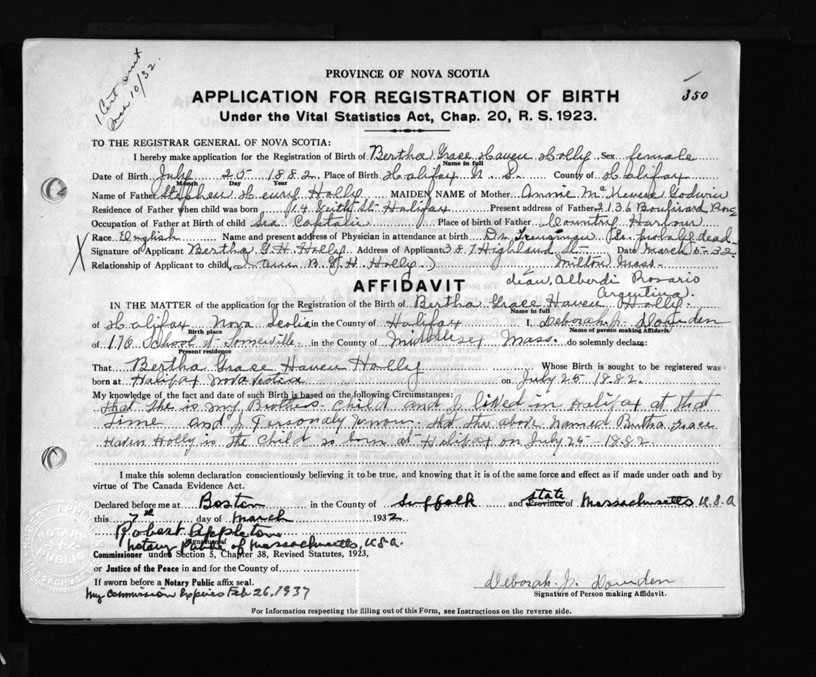 1 Cert sent
Mar 10/32.
PROVINCE OF NOVA SCOTIA
350
APPLICATION FOR REGISTRATION OF BIRTH
Under the Vital Statistics Act, Chap. 20, R. S. 1923.
TO THE REGISTRAR GENERAL OF NOVA SCOTIA:
I hereby make application for the Registration of Birth of Bertha Grace Haven Holly Sex female
Name in full
Date of Birth July 25 1882 Place of Birth Halifax N. S. County of Halifax
Month Day Year
Name of Father Stephen Henry Holly MAIDEN NAME of Mother Annie Godwin
Residence of Father when child was born 14 Keith St. Halifax Present address of Father 2136
Occupation of Father at Birth of child Sea Captain Place of birth of Father Country Harbour
Race English Name and present address of Physician in attendance at birth Dr. dead
X Signature of Applicant Bertha G. H. Holly Address of Applicant 357 Highland St Date March 5-32
Relationship of Applicant to child Milton Mass.
AFFIDAVIT
dean, Alberdi Rosario
Argentina.
IN THE MATTER of the application for the Registration of the Birth of Bertha Grace Haven Holly
Name in full
of Halifax Nova Scotia in the County of Halifax I, Deborah J. Dowden
Birth place Name of person making Affidavit
of 176 School St Somerville in the County of Middlesex Mass. do solemnly declare:
Present residence
That Bertha Grace Haven Holly Whose Birth is sought to be registered was
born at Halifax Nova Scotia on July 25 1882.
My knowledge of the fact and date of such Birth is based on the following Circumstances:
that she is my Brothers Child and I lived in Halifax at that
time and I Personaly know that the above named Bertha Grace
Haven Holly is the child so born at Halifax on July 25 - 1882
I make this solemn declaration conscientiously believing it to be true, and knowing that it is of the same force and effect as if made under oath and by
virtue of The Canada Evidence Act.
Declared before me at Boston in the County of Suffolk and State Province of Massachusetts U.S.A
this 7th day of March 1932
Robert Appleton
Notary Public of Massachusetts, U.S.A.
Commissioner under Section 5, Chapter 38, Revised Statutes, 1923,
or Justice of the Peace in and for the County of
If sworn before a Notary Public affix seal.
My Commission Expires Feb 26, 1937
Deborah J. Dowden
Signature of Person making Affidavit.
For Information respecting the filling out of this Form, see Instructions on the reverse side.